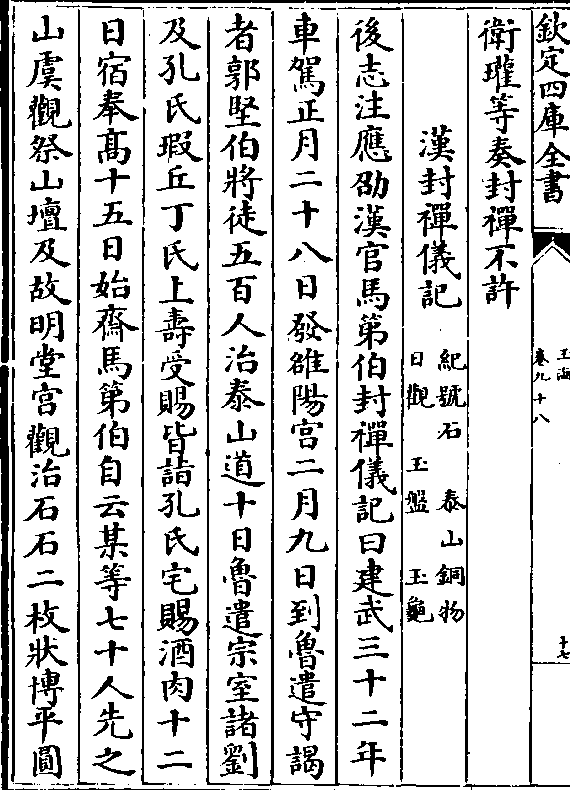 欽定四庫全書
玉海
卷九十八
十七
衛瓘等奏封禪不許
漢封禪儀記
紀號石 泰山銅物
日觀 玉盤 玉龜
後志注應劭漢官馬第伯封禪儀記曰建武三十二年
車駕正月二十八日發雒陽宫二月九日到魯遣守謁
者郭堅伯將徒五百人治泰山道十日魯遣宗室諸劉
及孔氏瑕丘丁氏上壽受賜皆詣孔氏宅賜酒肉十二
日宿奉髙十五日始齋馬第伯自云某等七十人先之
山虞觀祭山壇及故明堂宫觀治石石二枚狀博平圓